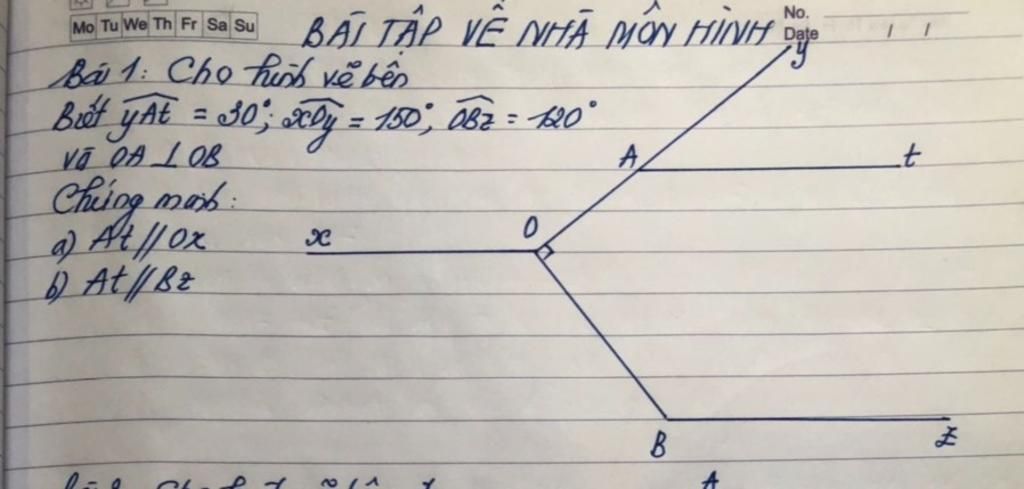 Mo Tu We Th Fr Sa Su
No.
Date / /
BÀI TẬP VỀ NHÀ MÔN HÌNH
Bài 1: Cho hình vẽ bên
Biết yAt = 30°; xOy = 150°, OBz = 120°
và OA ⊥ OB
Chứng minh:
a) At // Ox
b) At // Bz
y
A
t
O
x
B
z
A